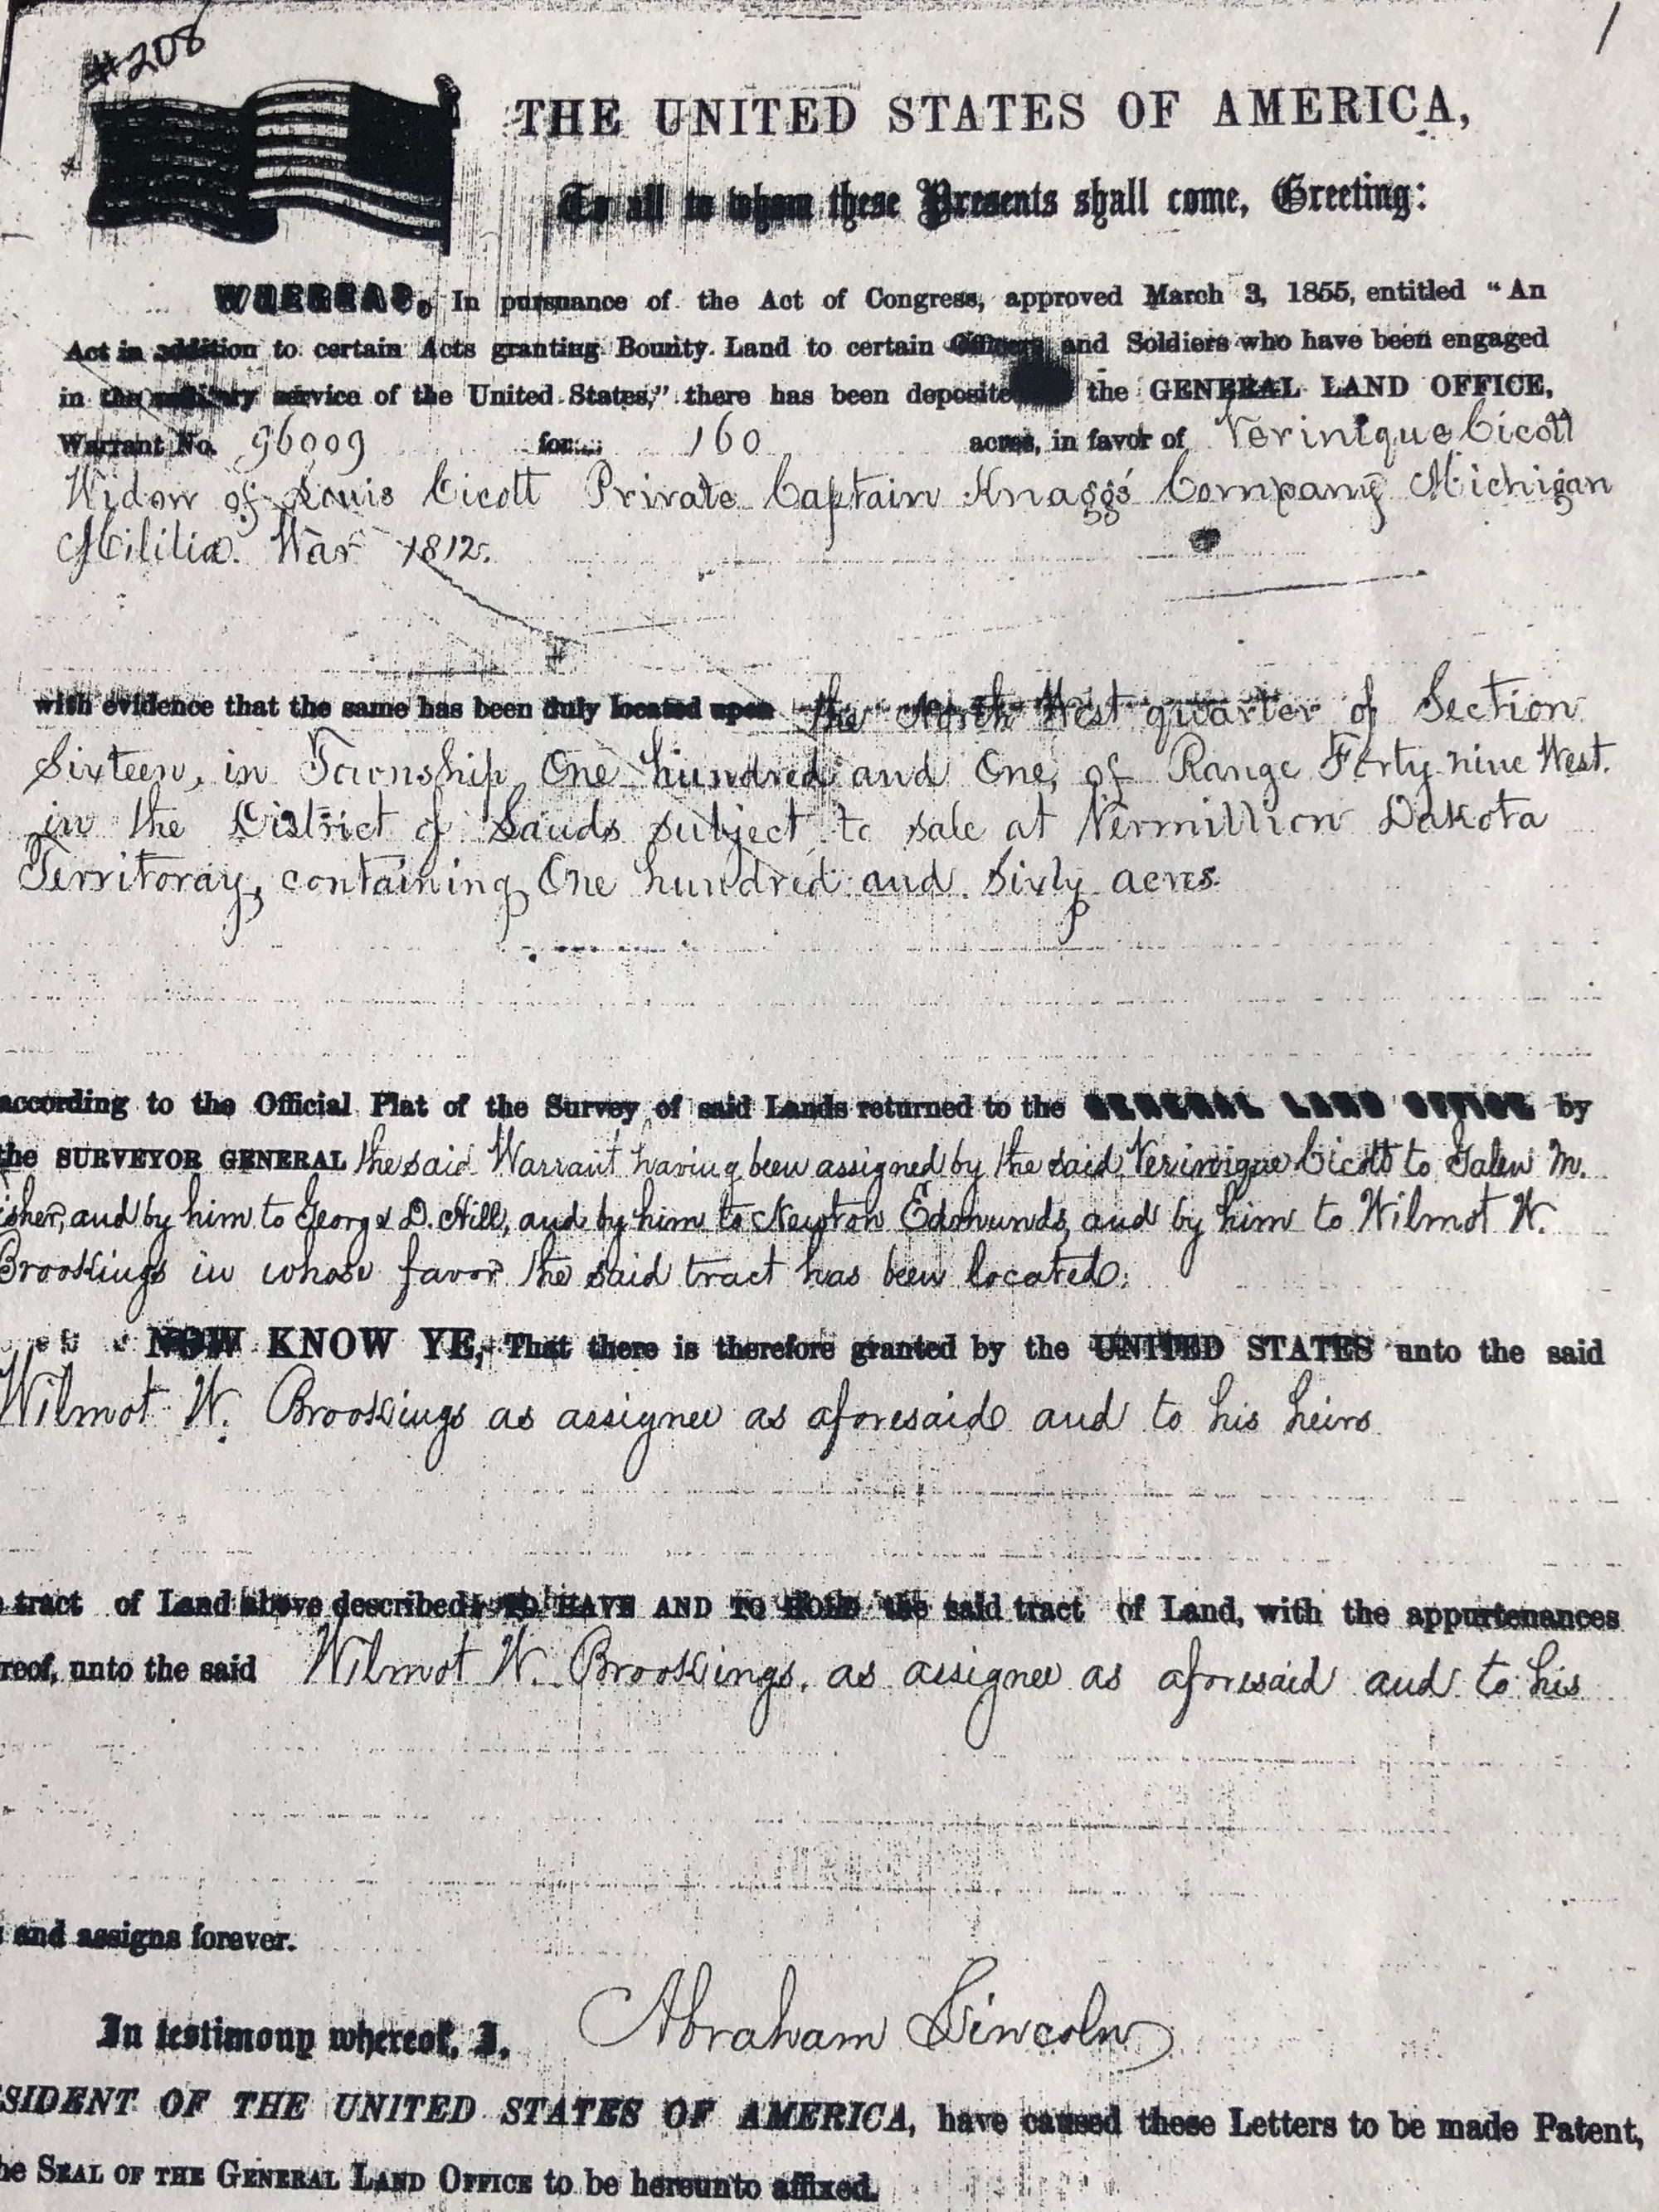 #208
1
THE UNITED STATES OF AMERICA,
To all to whom these Presents shall come, Greeting:
WHEREAS, In pursuance of the Act of Congress, approved March 3, 1855, entitled "An
Act in addition to certain Acts granting Bounty Land to certain Officers and Soldiers who have been engaged
in the military service of the United States," there has been deposite the GENERAL LAND OFFICE,
Warrant No. 96009 for 160 acres, in favor of Verinique Cicott
Widow of Louis Cicott Private Captain Knaggs' Company Michigan
Militia. War 1812.
with evidence that the same has been duly located upon the North West quarter of Section
Sixteen, in Township One hundred and One, of Range Forty nine West.
in the District of Lands subject to sale at Vermillion Dakota
Territoray, containing One hundred and Sixty acres.
according to the Official Plat of the Survey of said Lands returned to the GENERAL LAND OFFICE by
the SURVEYOR GENERAL the said Warrant having been assigned by the said Verinique Cicott to Galen M.
isher, and by him to George D. Hill, and by him to Newton Edmunds, and by him to Wilmot W.
Brookings in whose favor the said tract has been located.
NOW KNOW YE, That there is therefore granted by the UNITED STATES unto the said
Wilmot W. Brookings as assignee as aforesaid and to his heirs
tract of Land above described: TO HAVE AND TO HOLD the said tract of Land, with the appurtenances
reof, unto the said Wilmot W. Brookings, as assignee as aforesaid and to his
and assigns forever.
In testimony whereof, I, Abraham Lincoln
SIDENT OF THE UNITED STATES OF AMERICA, have caused these Letters to be made Patent,
he SEAL OF THE GENERAL LAND OFFICE to be hereunto affixed.